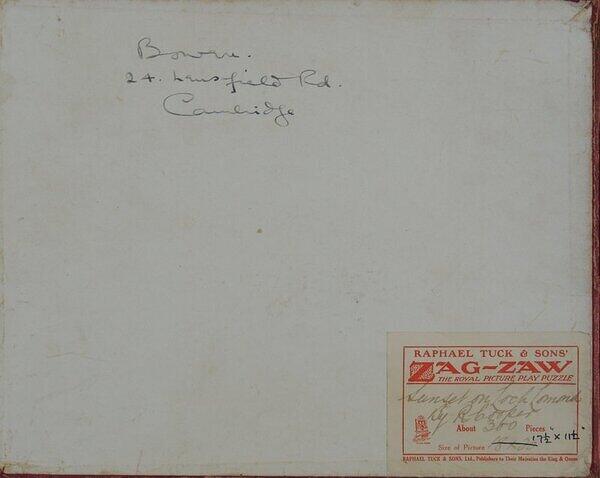 Bowen.
24. Lensfield Rd.
Cambridge
RAPHAEL TUCK & SONS'
ZAG-ZAW
THE ROYAL PICTURE PLAY PUZZLE
Sunset on Loch Lomond
by R Cooper
About 360 Pieces
Size of Picture 17½" × 11½"
RAPHAEL TUCK & SONS, Ltd., Publishers to Their Majesties the King & Queen